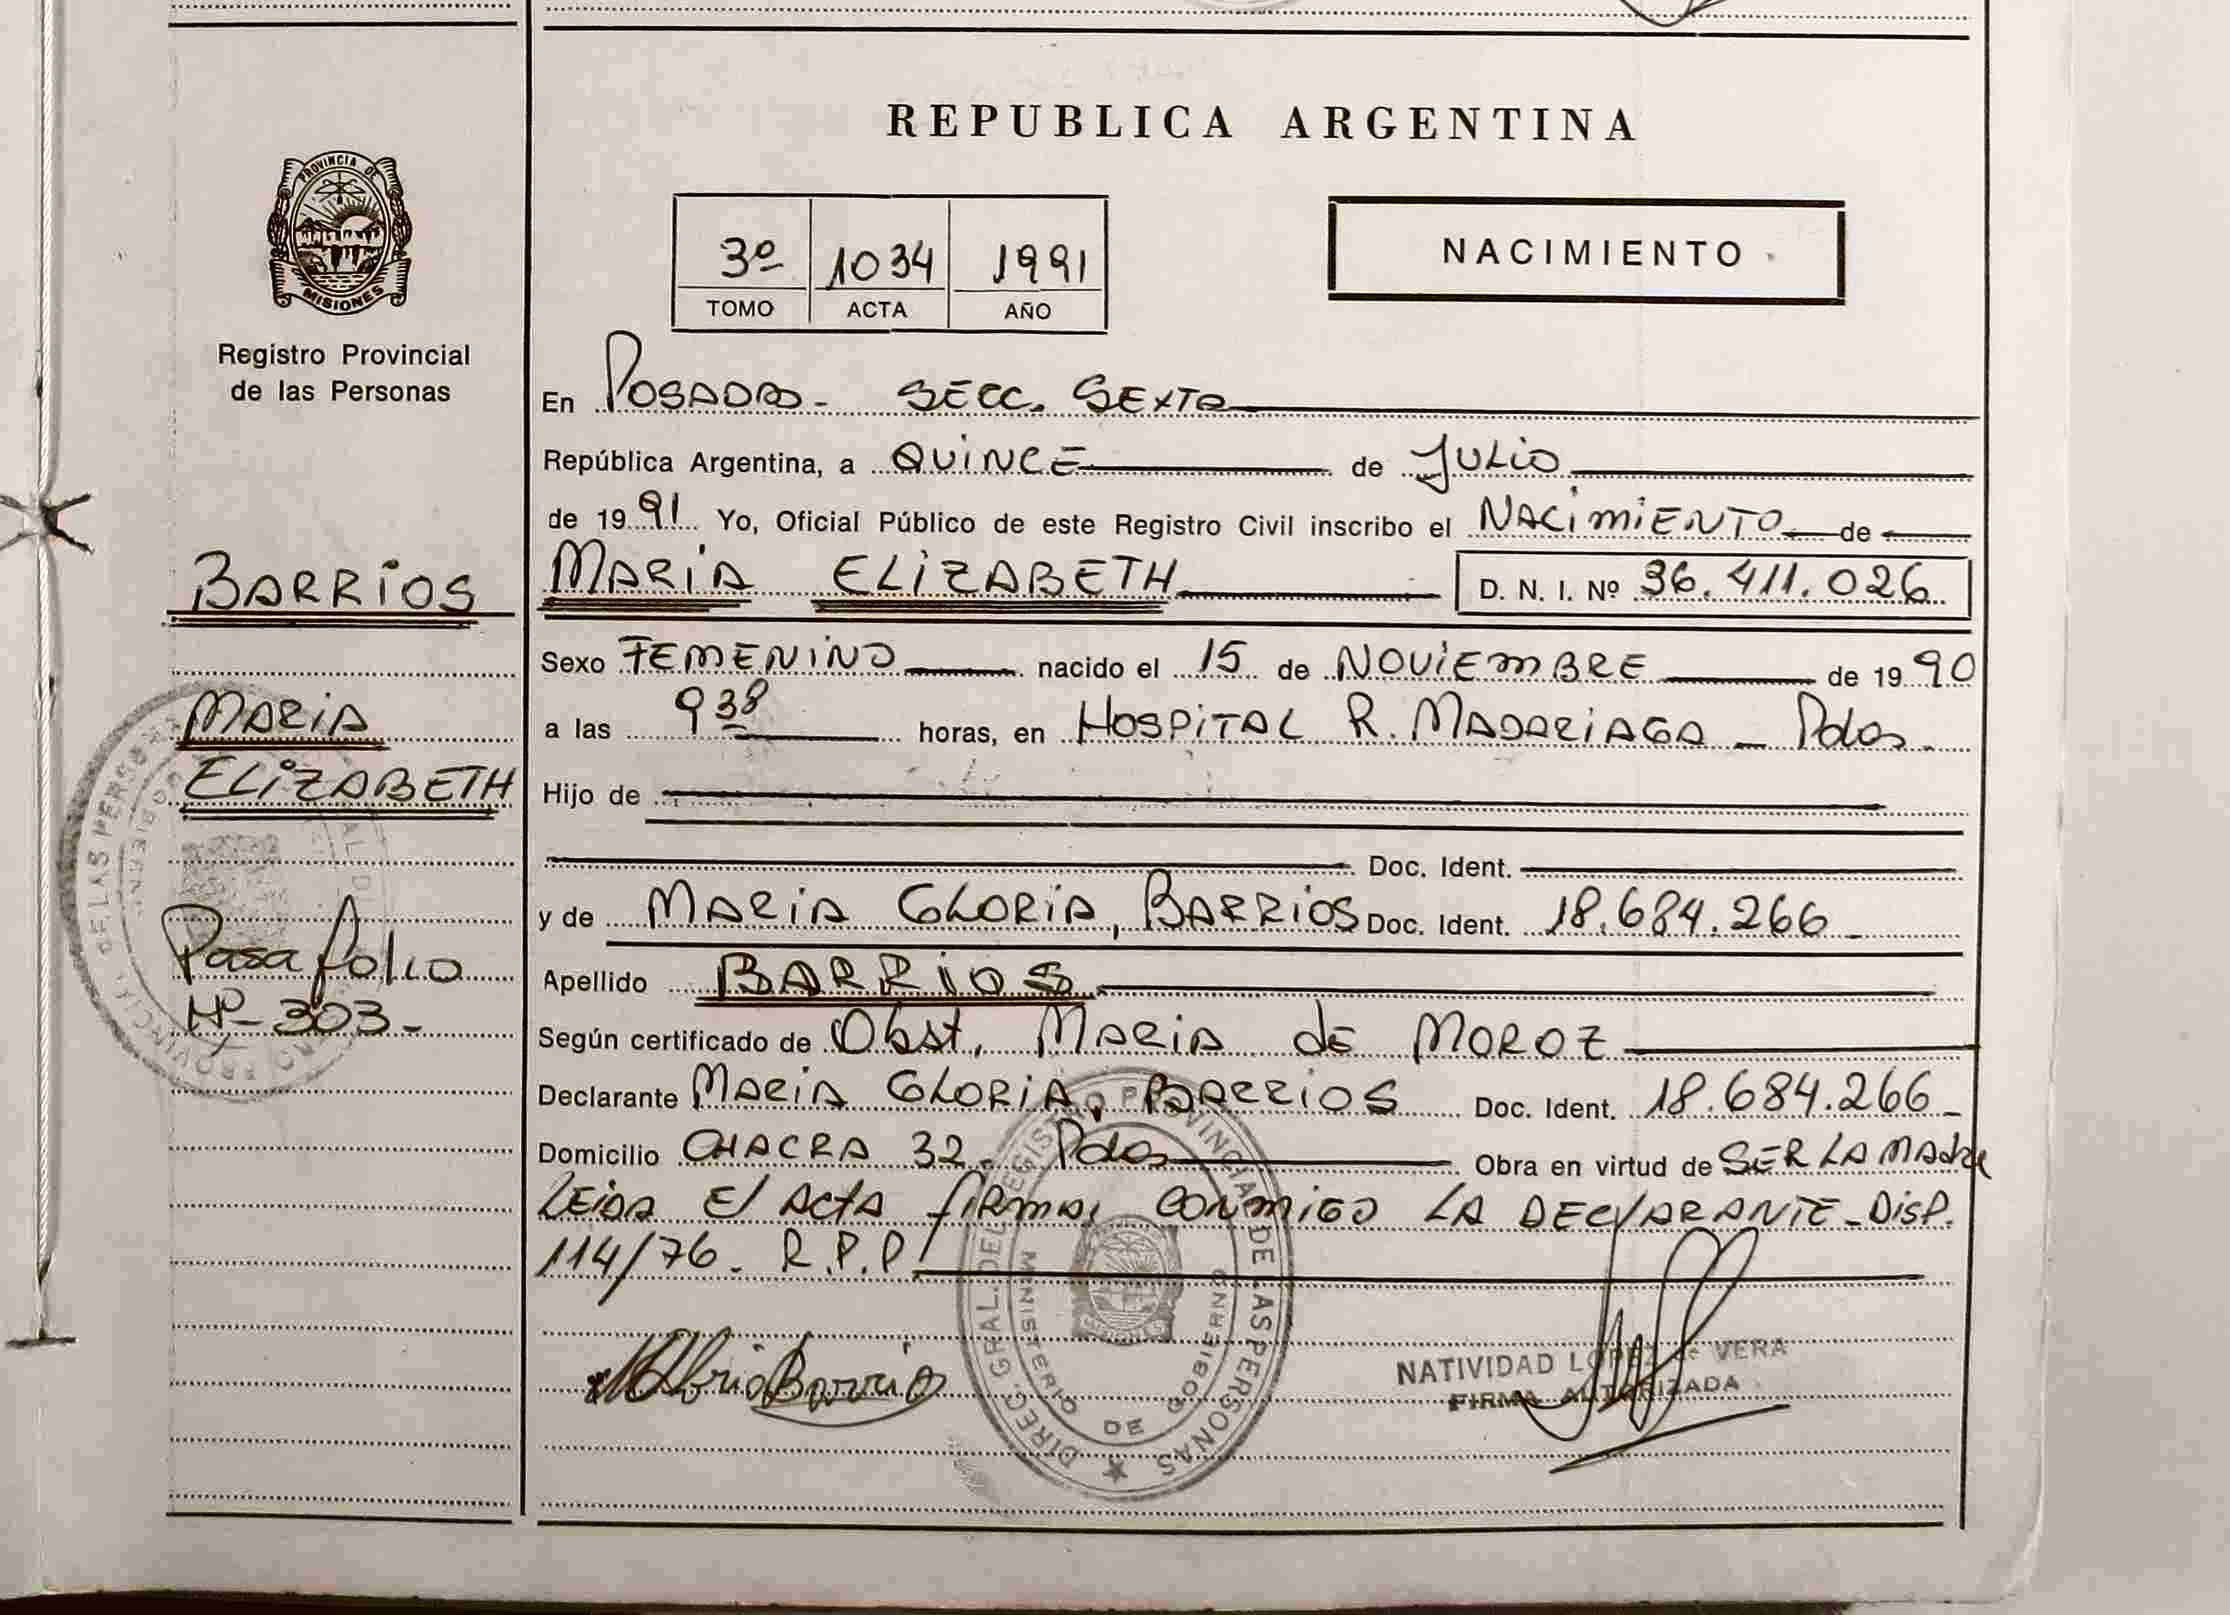 REPUBLICA ARGENTINA
PROVINCIA DE
MISIONES
Registro Provincial
de las Personas
3º 1034 1991
TOMO ACTA AÑO
NACIMIENTO
En POSADAS - SECC. SEXTA
República Argentina, a QUINCE de JULIO
de 1991 Yo, Oficial Público de este Registro Civil inscribo el NACIMIENTO de
BARRIOS
MARIA ELIZABETH D. N. I. Nº 36.411.026
Sexo FEMENINO nacido el 15 de NOVIEMBRE de 1990
MARIA
a las 9 38 horas, en HOSPITAL R. MADARIAGA - Pdas.
ELIZABETH
Hijo de
Doc. Ident.
y de MARIA GLORIA, BARRIOS Doc. Ident. 18.684.266
Pasa folio
Nº 303.-
Apellido BARRIOS
Según certificado de Obst. MARIA de MOROZ
Declarante MARIA GLORIA, BARRIOS Doc. Ident. 18.684.266
Domicilio CHACRA 32 - Pdas Obra en virtud de SER LA MADRE
LEIDA El ACTA FIRMA, CONMIGO LA DECLARANTE - DISP.
114/76 - R.P.P.
DIREC. GRAL. DEL REGISTRO PROVINCIAL DE LAS PERSONAS
MINISTERIO DE GOBIERNO
NATIVIDAD LOPEZ de VERA
FIRMA AUTORIZADA